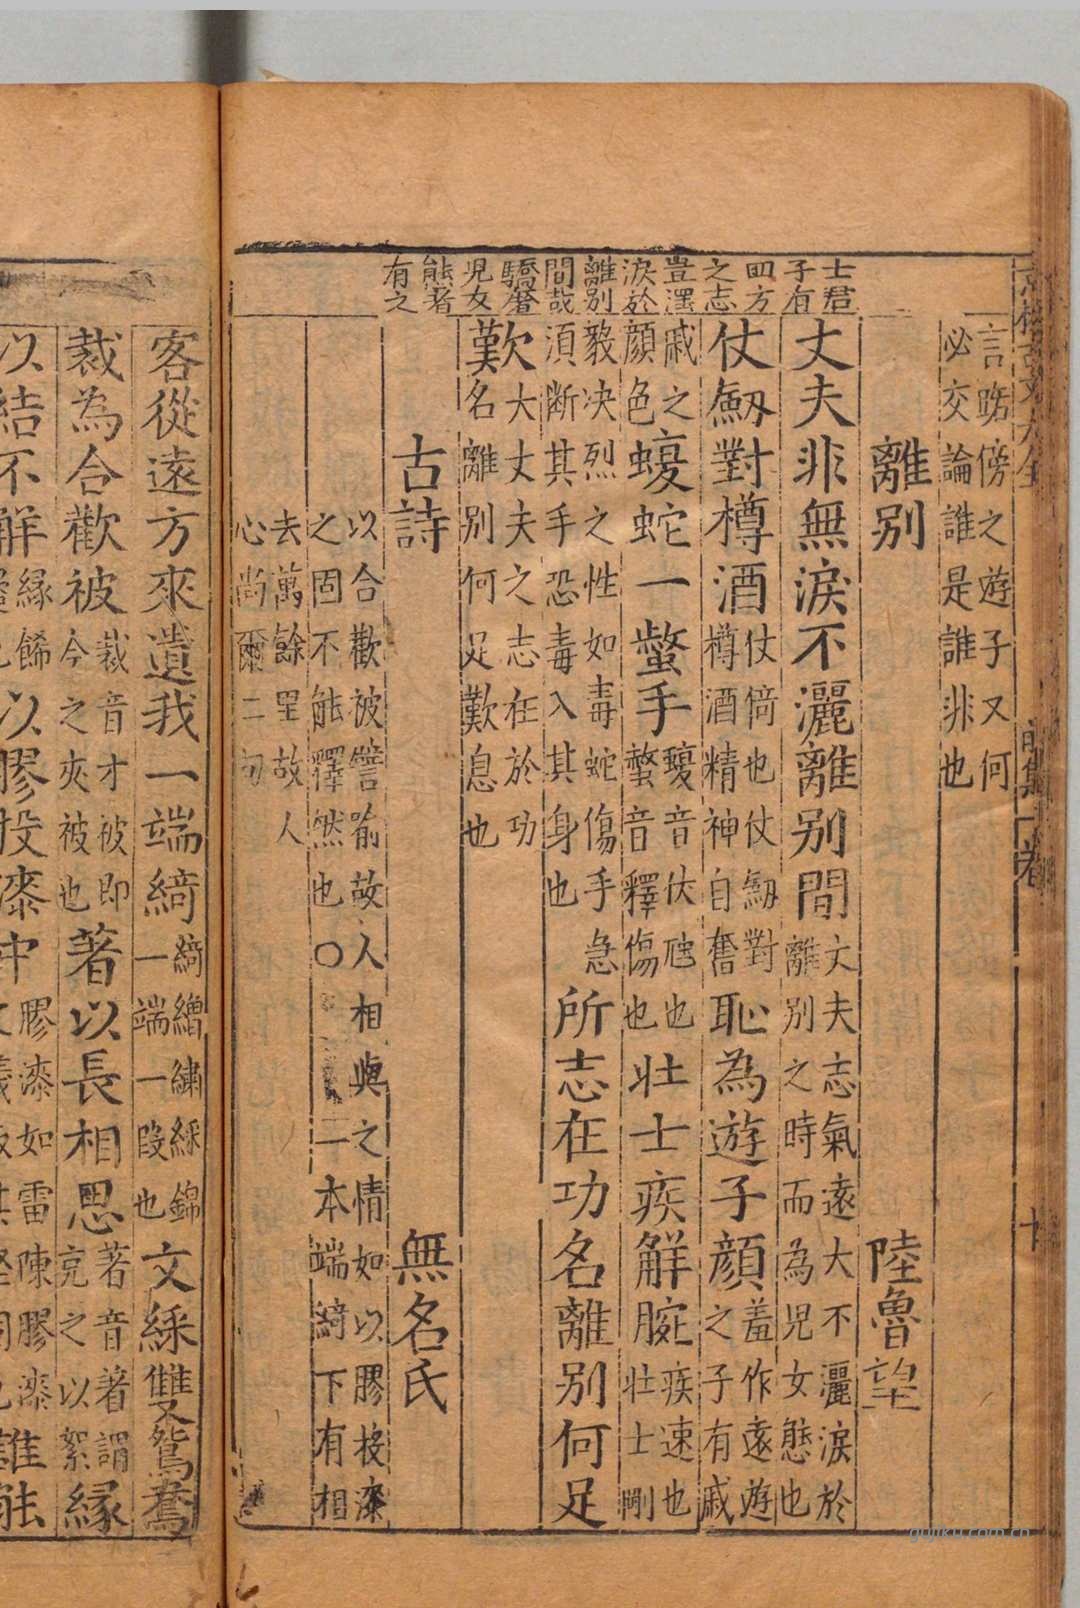 言踄傍之遊子又何
必交論誰是誰非也
離别
陸魯望
士君
子有
四方
之志
豈灑
淚於
離别
間哉
驕奢
児女
態者
有之
丈夫非無淚不灑離别間
丈夫志氣遠大不灑淚於
離别之時而為児女態也
仗劒對樽酒
仗倚也仗劒對
樽酒精神自奮
恥為遊子顔
羞作遠遊
之子有戚
戚之
顔色
蝮蛇一螫手
蝮音伏虺也
螫音釋傷也
壮士疾解腕
疾速也
壮士剛
毅决烈之性如毒蛇傷手急
湏断其手恐毒入其身也
所志在功名離别何足
歎
大丈夫之志在於功
名離别何足歎息也
古詩
無名氏
以合歡被譬喻故人相與之情如以膠投漆
之固不能釋然也〇一本端綺下有相
去萬餘里故人
心尚爾二句
客從遠方來遺我一端綺
綺繒繡綵錦
一端一段也
文綵雙鴛鴦
裁為合歡被
裁音才被即
今之夾被也
著以長相思
著音著謂
充之以絮
縁
以結不解
縁餙
以膠投漆中
膠漆如雷陳膠漆
誰能